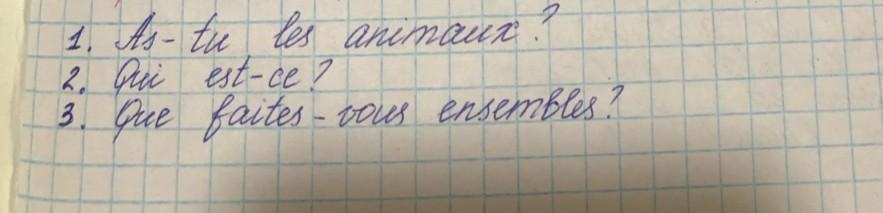 1. As-tu les animaux?
2. Qui est-ce?
3. Que faites-vous ensembles?